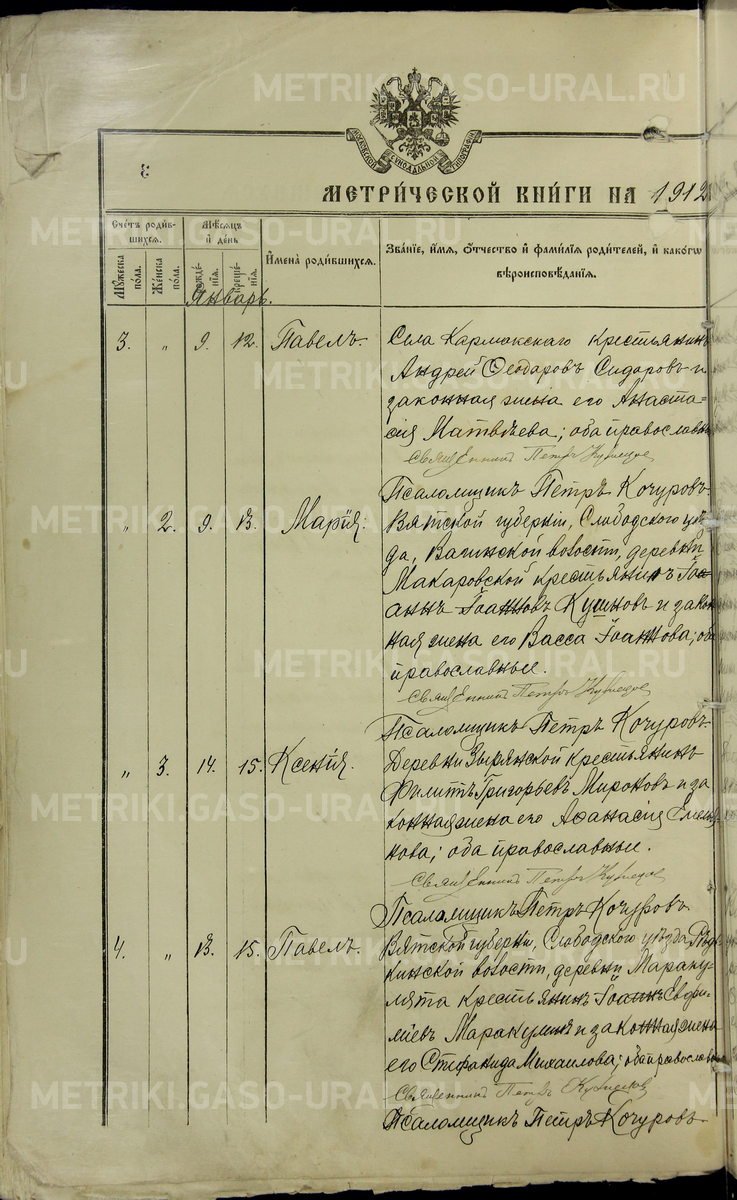 METRIKI.GASO-URAL.RU
МОСКОВСКОЙ СѴНОДАЛЬНОЙ ТИПОГРАФІИ
МЕТРИ́ЧЕСКОЙ КНИ́ГИ НА 1912
Сче́тъ роди́в-
шихся.
Му́жеска
по́ла.
Же́нска
по́ла.
Мѣ́сяцъ
и де́нь
рожде́-
нія.
креще́-
нія.
Имена̀ роди́вшихся.
Зва́ніе, и́мя, ѻ́тчество и фами́лія роди́телей, и како́гѡ
вѣроисповѣ́данія.
Январь.
3. " 9. 12. Павелъ. Села Кармакскаго крестьянинъ
Андрей Ѳеодоровъ Сидоровъ и
законная жена его Анаста-
сія Матвѣева; оба православн
Священникъ Петръ Кузнецов
Псаломщикъ Петръ Кочуровъ.
" 2. 9. 13. Марія. Вятской губерніи, Слободского уѣз
да, Вагинской волости, деревни
Макаровской крестьянинъ Іоа
аннъ Іоанновъ Кушновъ и закон
ная жена его Васса Іоаннова; оба
православные.
Священникъ Петръ Кузнецов
Псаломщикъ Петръ Кочуровъ.
" 3. 14. 15. Ксенія. Деревни Зырянской крестьянинъ
Филиппъ Григорьевъ Мироновъ и за
конная жена его Аѳанасія Емелья
нова; оба православные.
Священникъ Петръ Кузнецов
Псаломщикъ Петръ Кочуровъ
4. " 13. 15. Павелъ. Вятской губерніи, Слободского уѣзда
кинской волости, деревни Мараку-
лята крестьянинъ Іоаннъ
Маракулинъ и законная жена
его Стефанида Михаилова; оба православн
Священникъ Петръ Кузнецов
Псаломщикъ Петръ Кочуровъ.